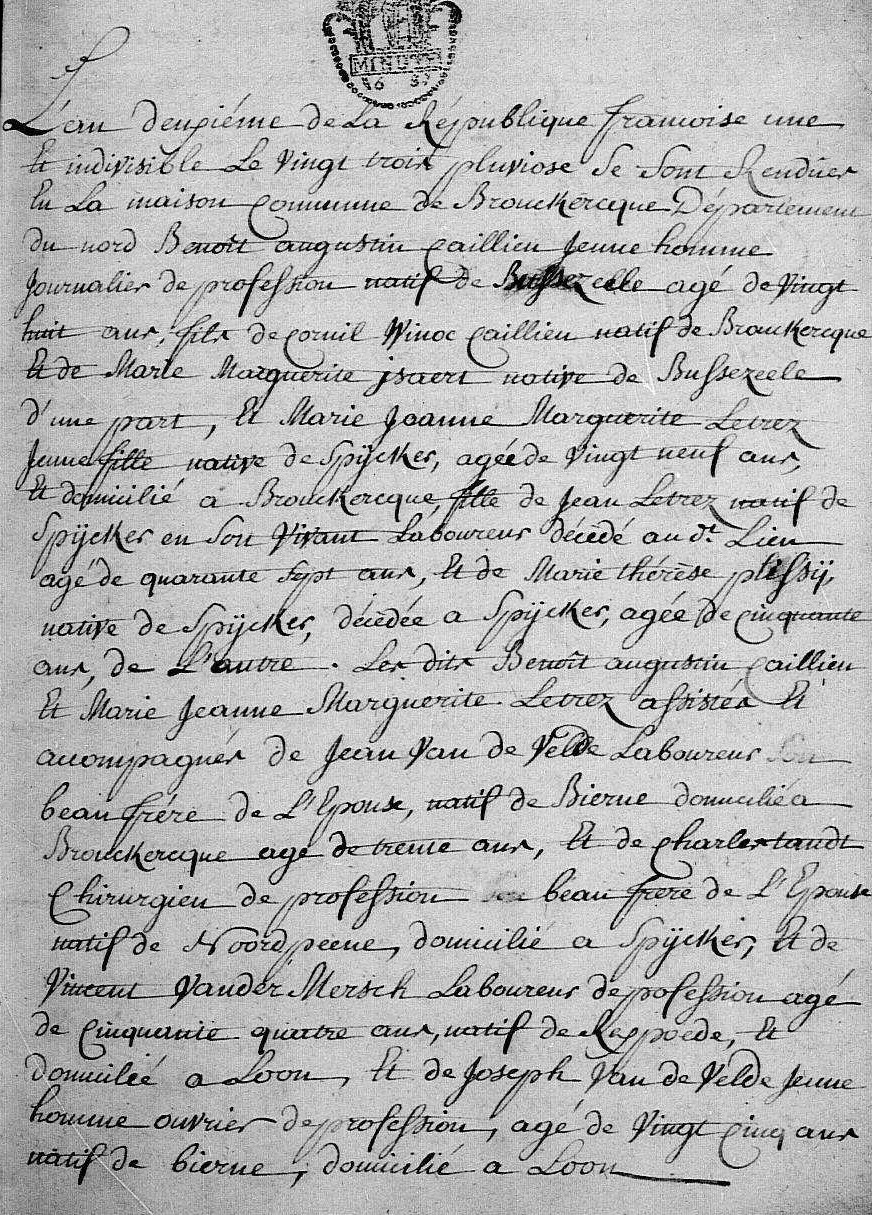 MINUTE
L'an deuxiéme de La République francoise une
Et indivisible Le Vingt trois pluviose Se Sont Rendües
En La maison Commune de Brouckercque Département
du nord Benoît augustin Caillieu Jeune homme
Journalier de profession natif de Bussezeele agé de Vingt
huit ans, fils de Cornil Winoc Caillieu natif de Brouckercque
Et de Marie Marguerite jsaert native de Bussezeele
d'une part, Et Marie Joanne Marguerite Letrez
Jeune fille native de Spÿcker, agée de Vingt neuf ans,
Et domicilié a Brouckercque, fille de Jean Letrez natif de
Spÿcker en Son Vivant Laboureur décédé au dt. Lieu
agé de quarante Sept ans, Et de Marie thérèse plessÿ,
native de Spÿcker, décédée a Spÿcker, agée de Cinquante
ans, de L'autre. Les dits Benoît augustin Caillieu
Et Marie Jeanne Marguerite Letrez assistés Et
acompagnés de Jean Van de Velde Laboureur Son
beau frére de L'Epouse, natif de Bierne domicilié a
Brouckercque agé de trente ans, Et de Charles tandt
Chirurgien de profession Son beau frere de L'Epouse
natif de Noordpeene, domicilié a Spÿcker, Et de
Vincent Vander Mersch Laboureur de pofession agé
de Cinquante quatre ans, natif de Rexpoede, Et
domicilié a Loon, Et de Joseph Van de Velde Jeune
homme ouvrier de profession, agé de Vingt Cinq ans
natif de bierne, domicilié a Loon